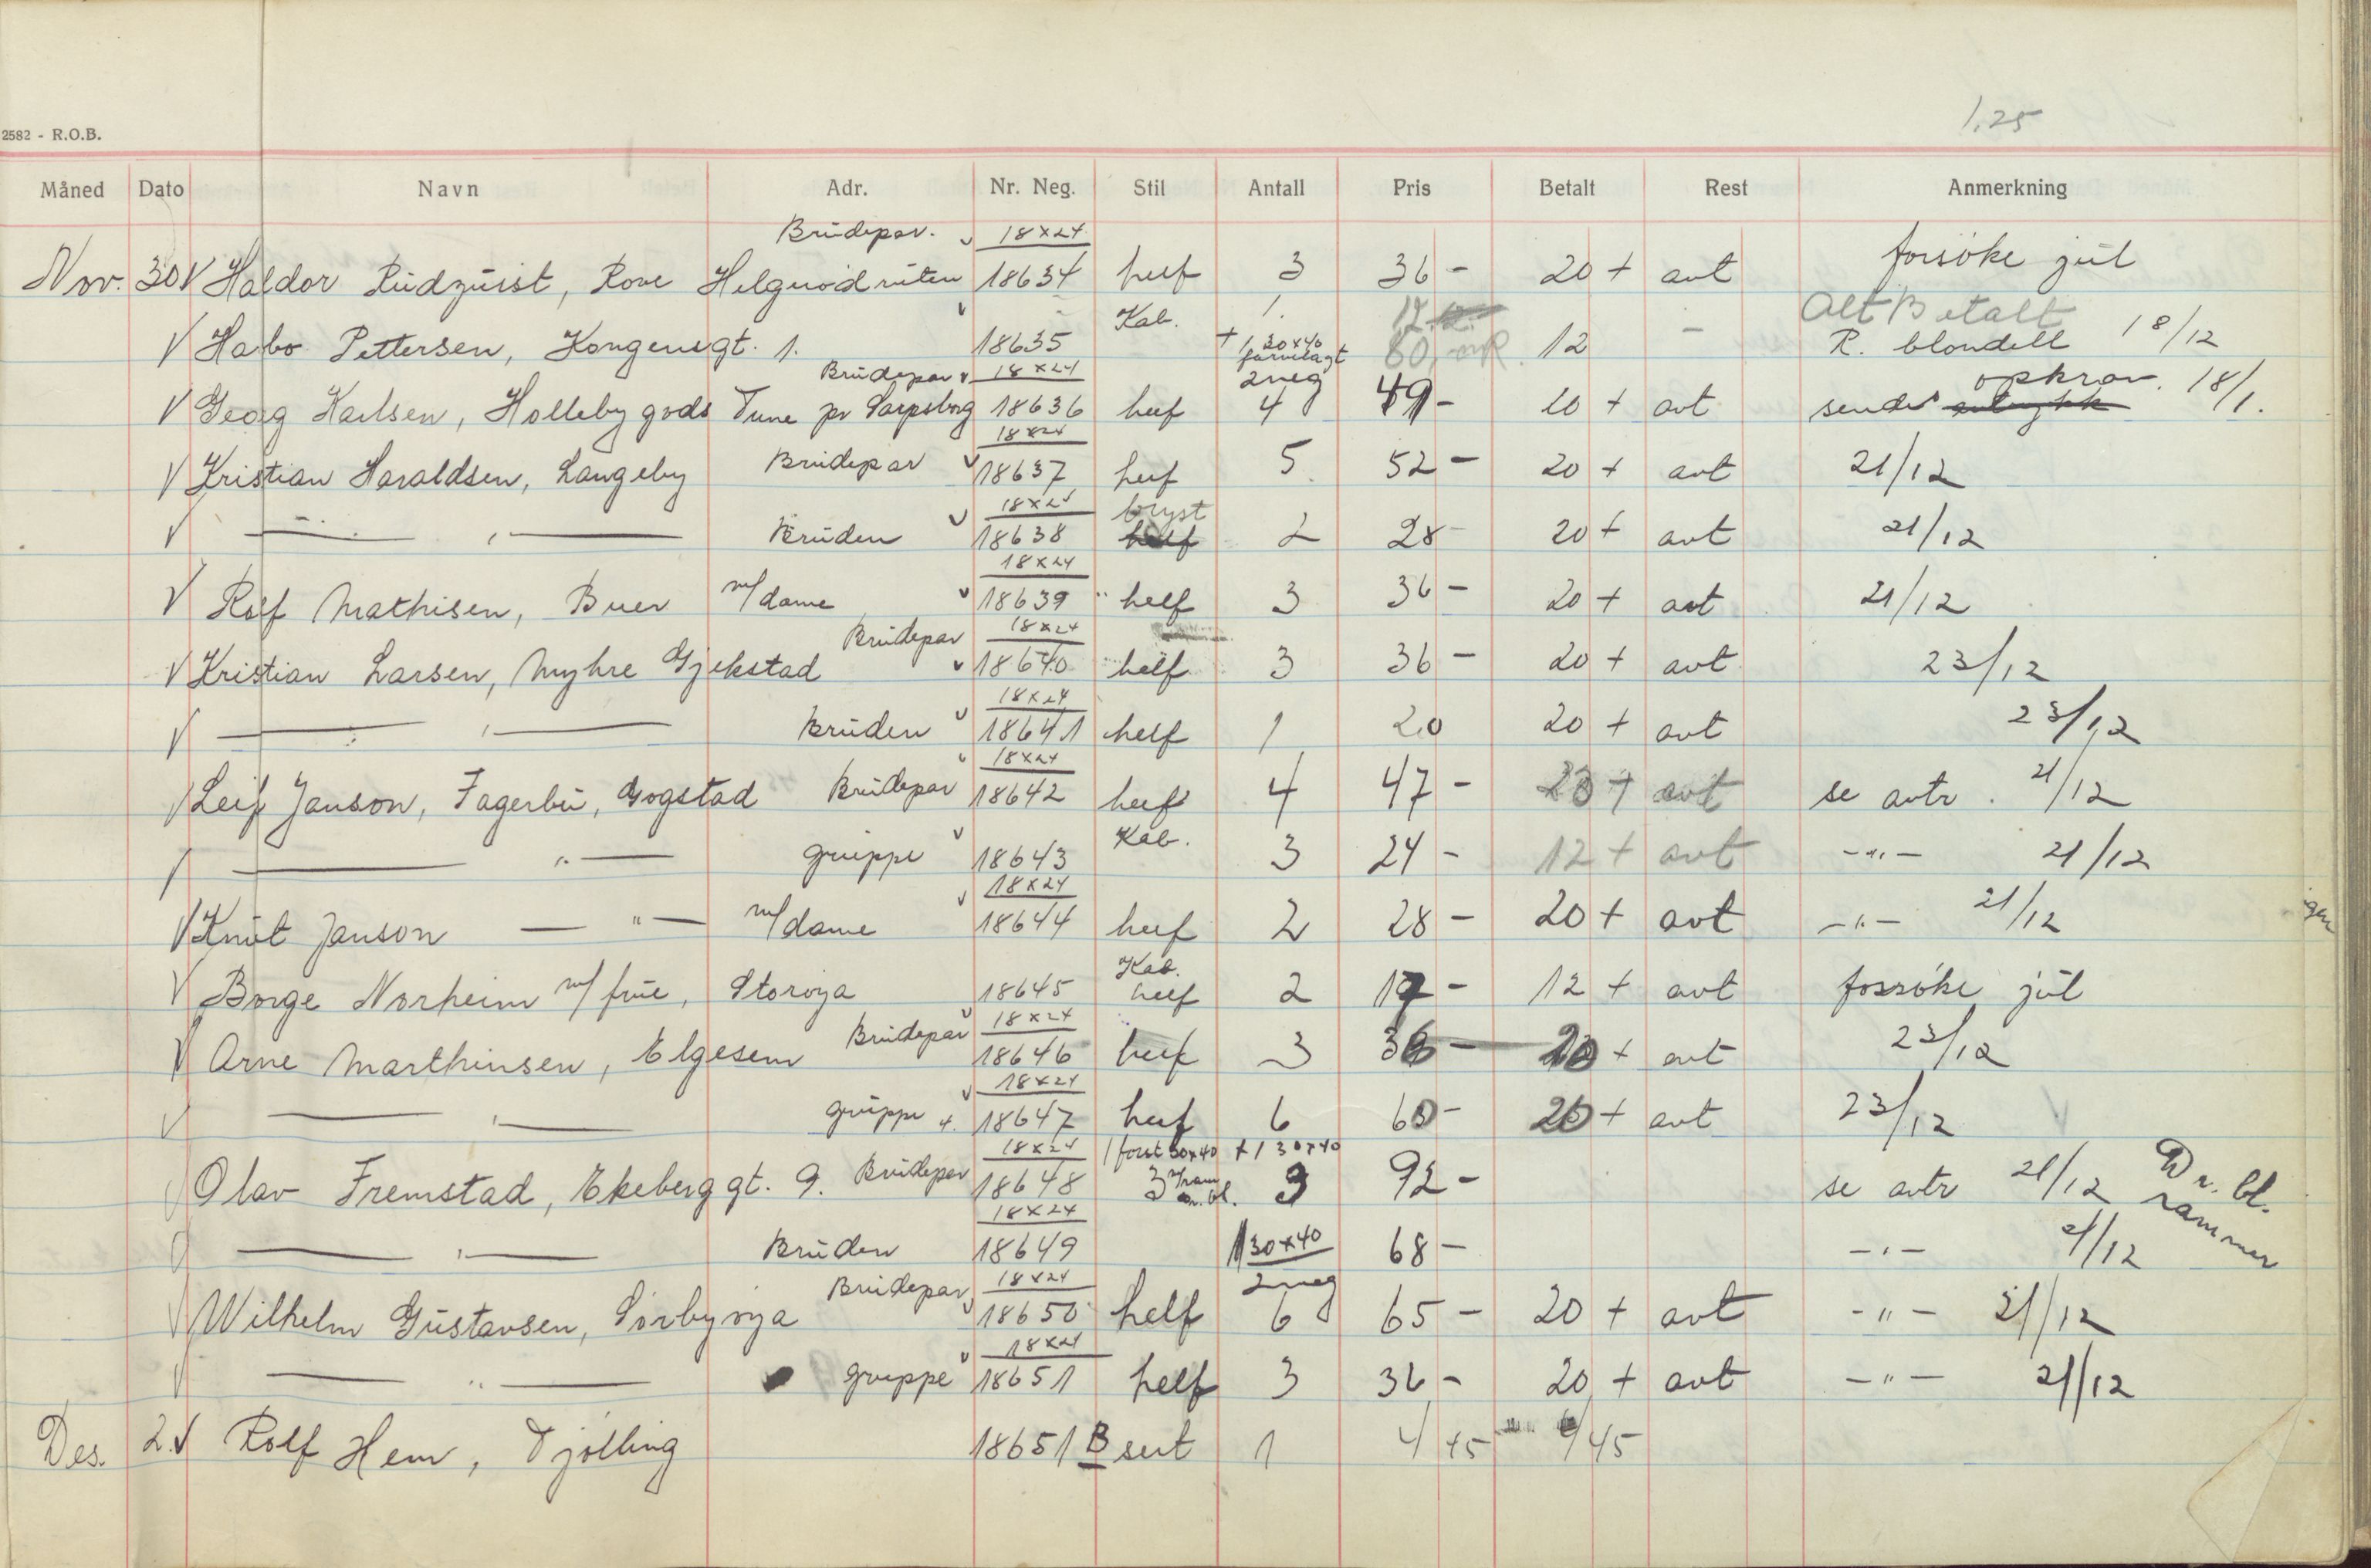 1.25
2582 - R.O.B.
Måned Dato Navn Adr. Nr. Neg. Stil Antall Pris Betalt Rest Anmerkning
Brudepar. 18x24
Nov. 30 Haldor Rudquist, Rove 18634 helf 3 36 - 20 + avt forsøke jul
Kab. 1. Alt Betalt
Habo Pettersen, Kongensgt. 1. 18635 + 1 30x40 12 - R. blondell 18/12
Brudepar 18x24 2 neg opkrav. 18/1.
Georg Karlsen, Holleby gods Tune pr Sarpsborg 18636 helf 4 49 - 20 + avt sendes
18x24
Kristian Haraldsen, Langeby Brudepar 18637 helf 5 52 - 20 + avt 21/12
18x24 bryst
— " — Bruden 18638 helf 2 28 - 20 + avt 21/12
18x24
Rolf Mathisen, Buer m/dame 18639 helf 3 36 - 20 + avt 21/12
Brudepar 18x24
Kristian Larsen, Myhre Gjekstad 18640 helf 3 36 - 20 + avt 23/12
18x24
— " — Bruden 18641 helf 1 20 20 + avt 23/12
18x24
Leif Janson, Fagerbu, Gogstad Brudepar 18642 helf 4 47 - 20 + avt se avtr. 21/12
Kab.
— " — gruppe 18643 3 24 - 12 + avt - " - 21/12
18x24
Knut Janson — " — m/dame 18644 helf 2 28 - 20 + avt - " - 21/12
Kab.
Borge Norheim m/ frue, Storøya 18645 helf 2 17 - 12 + avt forsøke jul
Brudepar 18x24
Arne Marthinsen, Elgesem 18646 helf 3 36 - 20 + avt 23/12
18x24
— " — gruppe 18647 helf 6 60 - 20 + avt 23/12
18x24 1 forst 30x40 + 1 30x40
Olav Fremstad, Ekeberggt. 9. Brudepar 18648 3 m/ram br. bl. 3 92 - se avtr 21/12 Dr. bl. rammer
18x24
— " — Bruden 18649 1 30x40 68 - - " - 21/12
Brudepar 18x24 2 neg
Wilhelm Gustavsen, Sørbyøya 18650 helf 6 65 - 20 + avt - " - 21/12
18x24
— " — gruppe 18651 helf 3 36 - 20 + avt - " - 21/12
Des. 2. Rolf Hem, Tjølling 18651 B sert 1 4 45 4/45